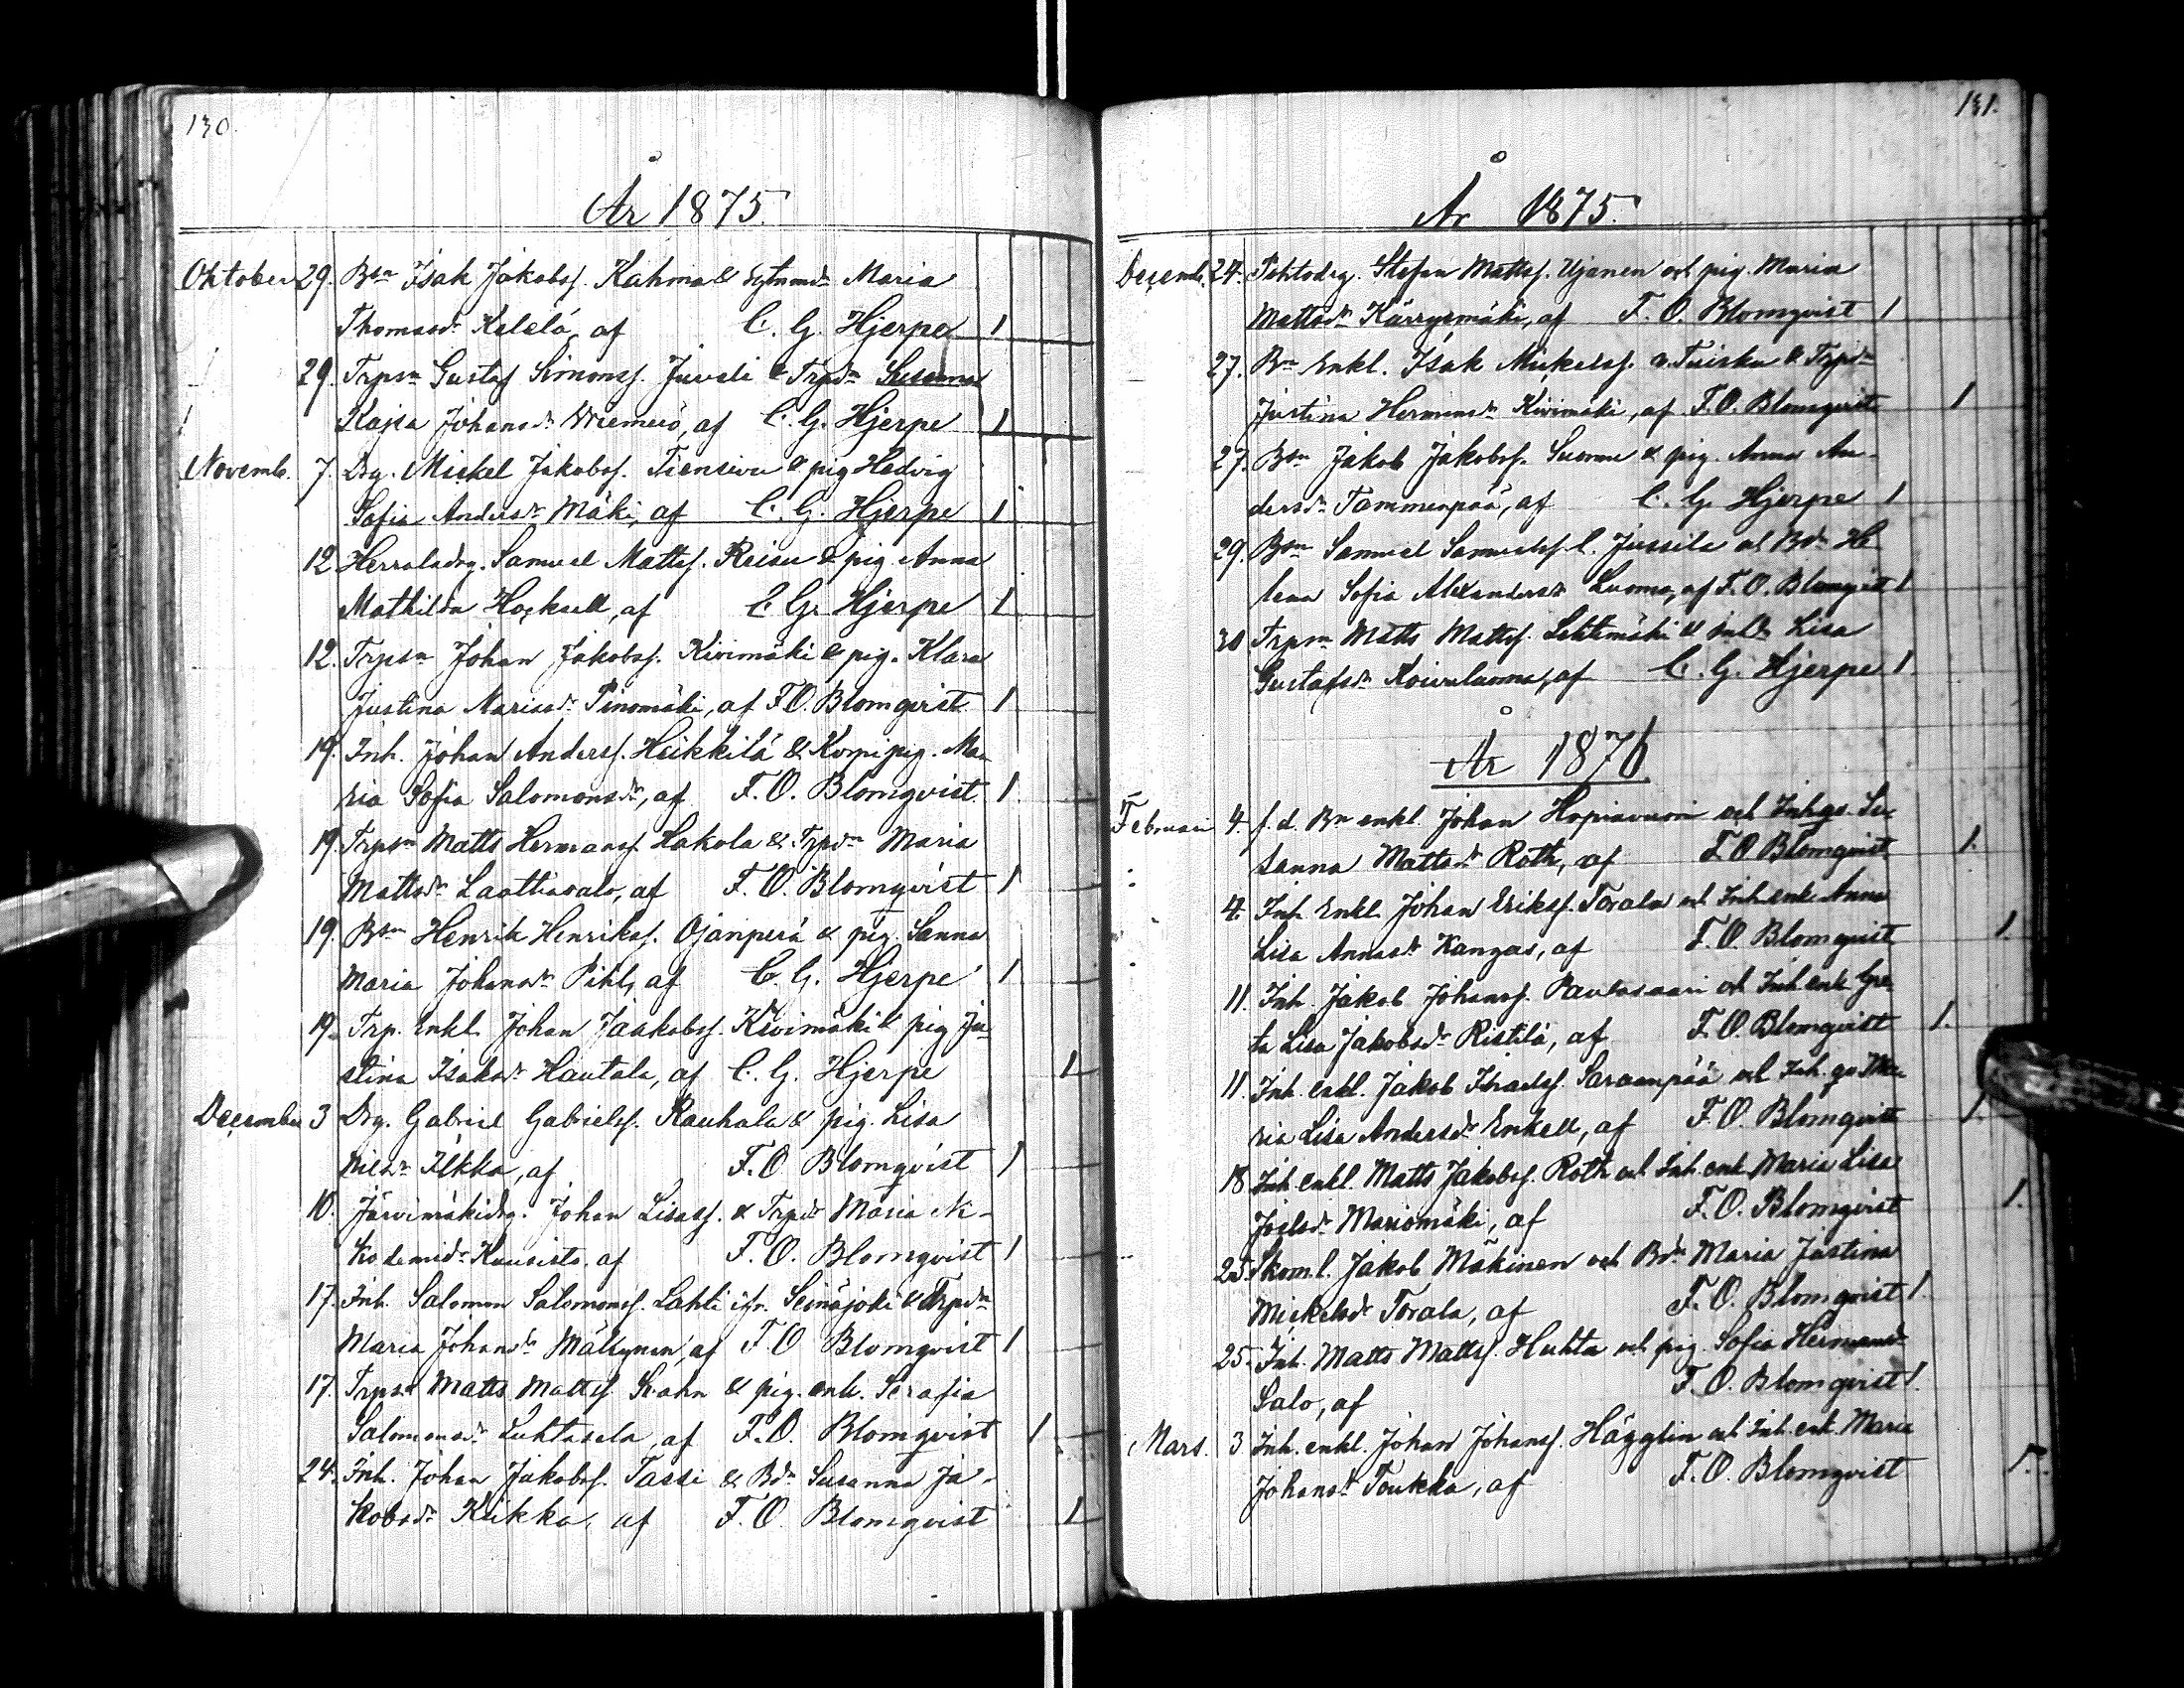 130.
År 1875.
Oktober 29. Bsn Isak Jakobss. Kahma & Maria
Thomasdr Kelelä, af C. G. Hjerpe 1
29. Trpsn Gustaf Simonss. Juveli & Trpdn Susanna
Kajsa Johansdr af C. G. Hjerpe 1
Novemb. 7. Drg. Mickel Jakobss. Tiensivu & pig Hedvig
Sofia Andersdr Mäki, af C. G. Hjerpe 1
12 Herraladrg. Samuel Mattss. Reisu & pig Anna
Mathilda af C. G. Hjerpe 1
12. Trpsn Johan Jakobss. Kivimäki & pig. Klara
Justina Mariasdr Pinomäki, af F. O. Blomqvist 1
19. Inh. Johan Anderss. Heikkilä & pig. Ma-
ria Sofia Salomonsdr, af F. O. Blomqvist. 1
19. Trpsn Matts Hermanss. Hakola & Trpdn Maria
Mattsdr Laattiasalo, af F. O. Blomqvist 1
19. Bsn Henrik Henrikss. Ojanperä & pig. Sanna
Maria Johansdr Pihl, af C. G. Hjerpe 1
19. Trp. Enkl. Johan Jaakobss. Kivimäki & pig Ju-
stina Isaksdr Hautala, af C. G. Hjerpe 1
December 3 Drg. Gabriel Gabrielss. Rauhala & pig. Lisa
Nilsdr Ilkka, af F. O. Blomqvist 1
10. Järvimäkidrg. Johan Lisass. & Trpdr Maria Ni-
kodemidr Kuusisto, af F. O. Blomqvist 1
17. Inh. Salomon Salomonss. Lahti ifr. Seinäjoki & Trpdn
Maria Johansdr Mälkynen, af F. O. Blomqvist 1
17. Trpsn Matts Mattss. & pig. enk. Serafia
Salomonsdr Luhtasela, af F. O. Blomqvist 1
24. Inh. Johan Jakobss. Tassi & Bdn Susanna Ja-
kobsdr Keikka, af F. O. Blomqvist 1
131.
År 1875.
Decemb. 24. Stefan Mattss. Ujanen och pig. Maria
Mattsdr Kärrysmäki, af F. O. Blomqvist 1
27. Bn Enkl. Isak Mickelss. Tuisku & Trpdn
Justina Hermansdr Kivimäki, af F. O. Blomqvist 1
27. Bsn Jakob Jakobss. & pig. Anna An-
dersdr Tammenpää, af C. G. Hjerpe 1
29. Bsn Samuel Samuelss. l. Jussila och Bdr He-
lena Sofia Alexandersdr Luoma, af F. O. Blomqvist 1
30 Trpsn Matts Mattss. Lehtimäki & Lisa
Gustafsdr Koivuluoma, af C. G. Hjerpe 1.
År 1876
Februari 4. f. d. Bn enkl. Johan Hopiavuori och Inhgs. Su-
sanna Mattsdr Roth, af F. O. Blomqvist 1.
4. Inh. Enkl. Johan Erikss. Torala och Inh. enk. Anna
Lisa Annasdr Kangas, af F. O. Blomqvist 1.
11. Inh. Jakob Johanss. Paulasaari och Inh. enk. Gre-
ta Lisa Jakobsdr Ristilä, af F. O. Blomqvist 1.
11. Inh. enkl. Jakob Israelss. Saranpää och Inh. gs Ma-
ria Lisa Andersdr Enkell, af F. O. Blomqvist 1
18 Inh. enkl. Matts Jakobss. Roth och Inh. enk Maria Lisa
Joelsdr Mariomäki, af F. O. Blomqvist 1.
25. Skom. l. Jakob Mäkinen och Bdr Maria Justina
Mickelsdr Torala, af F. O. Blomqvist 1.
25. Inh. Matts Mattss. Huhta och pig. Sofia Hermansdr
Salo, af F. O. Blomqvist 1.
Mars. 3 Inh. enkl. Johan Johanss. Hägglin och Inh. enk. Maria
Johansdr Toukka, af F. O. Blomqvist 1.